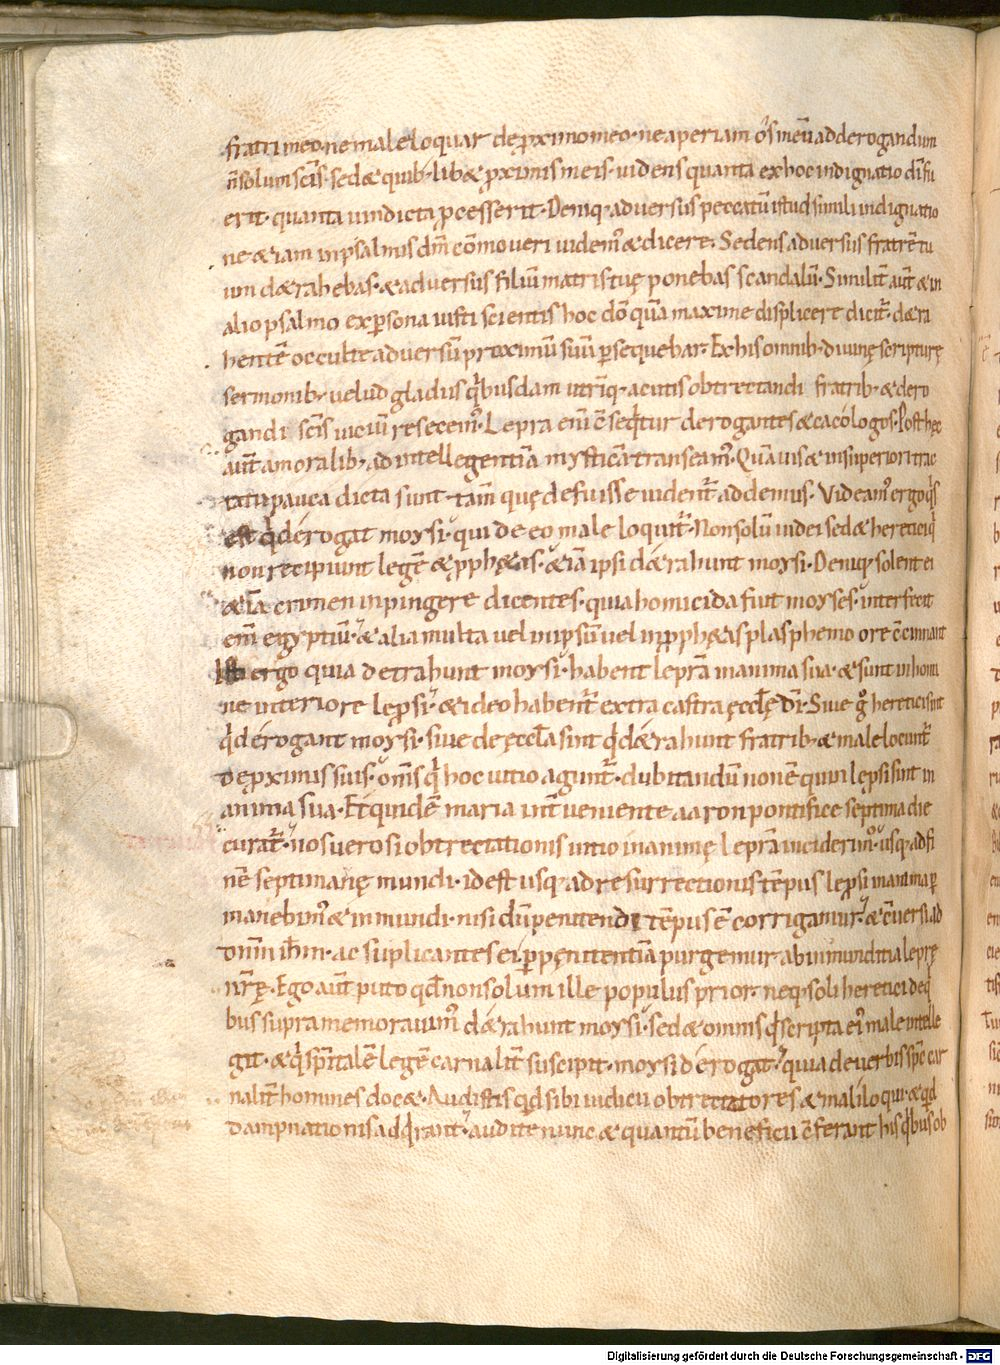 fratri meo· ne male loquar de ꝓximo meo· ne aperiam os meū ad derogandum
n̄ solum scīs· sed & quib; lib& ꝓximis meis· uidens quanta ex hoc indignatio dn̄i fu
erit· quanta uindicta ꝓcesserit· Deniq· aduersus peccatū istud simili indignatio
ne &iam in psalmis dn̄m cōmoueri uidem᾽ & dicere· Sedens aduersus fratrē tu
um d&rahebas· & aduersus filiū matris tuę ponebas scandalū· Similit̄ aut̄ & in
alio psalmo ex ꝑsona iusti scientis hoc dō quā maxime displicere dicit᷑· d&ra
hentē occulte aduersū proximū suū ꝑsequebar· Ex his omnib; diuinę scripturę
sermonib; uelud gladiis qͥbusdam utrīq· acutis obtrectandi fratrib; & dero
gandi scīs uiciū resecem᾽· Lepra enī c̄seqͥtur derogantes & cacologos· Post hęc
aut̄ a moralib; ad intellegentiā mysticā transeam᾽· Quāuis & in superiori trac
tatu pauca dicta sunt· tam̄ que defuisse uident᷑ addemus· Videam᾽ ergo qͥs
est qͥ derogat moysi· qui de eo male loquit᷑· Non solū iudei sed & heretici qͥ
non recipiunt legē & ꝓph&as· &iā ipsi d&rahunt moysi· Deniq; solent ei
&iā crimen inpingere dicentes· quia homicida fuit moyses· interfecit
enī egyptiū· & alia multa uel in ipsū uel in ꝓph&as plasphemo ore c̄cinnant
Isti ergo quia detrahunt moysi· habent leprā in anima sua· & sunt in homi
ne interiore leꝓsi· & ideo habent᷑ extra castra ęcclę dī· Siue gͦ heretici sint
qͥ derogant moysi· siue de ęccl̄a sint qͥ d&rahunt fratrib; & male locunt᷑
de ꝓximis suis· om̄s qͥ hoc uitio agunt᷑· dubitandū non ē quin lepsi sint in
anima sua· Et quidē maria int̄ueniente aaron pontifice septima die
curat᷑· nos uero si obtrectationis uitio in animę leprā inciderim᾽· usq· ad fi
nē septimanę mundi· id est usq· ad resurrectionis tēpus lepsi in anima ꝑ
manebim᾽ & inmundi· nisi dū penitendi tēpus ē corrigamur· & c̄uersi ad
dn̄m ih̄m· ac suplicantes ei ꝑ pęnitentiā purgemur ab inmunditia leprę
nr̄ę· Ego aut̄ puto qd̄ non solum ille populus prior· neq· soli heretici de qͥ
bus supra memorauim᾽ d&rahunt moysi· sed & omnis qͥ scripta ei᾽ male intelle
git· & qͥ spīritalē legē carnalit̄ suscipit· moysi derogat· quia de uerbis sp̄c car
nalit̄ homines doc&· Audistis qd̄ sibi iudicii obtrectatores & maliloqui· & qd̄
dampnationis adqͥrant· audite nunc & quantū beneficii c̄ferant his qͥbus ob
Digitalisierung gefördert durch die Deutsche Forschungsgemeinschaft - DFG